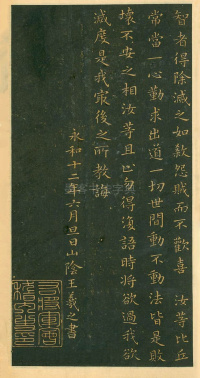 智者得除滅之如煞怨賊而不歡喜　汝等比丘
常當一心勤求出道一切世間動不動法皆是敗
壞不安之相汝等且止勿得復語時將欲過我欲
滅度是我最後之所教誨
永和十二年六月旦日山陰王羲之書